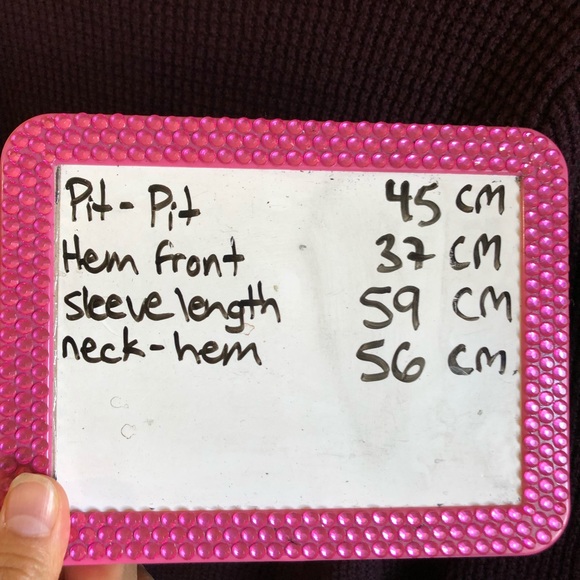 Pit-Pit 45 CM
Hem front 37 CM
sleeve length 59 CM
neck-hem 56 CM.